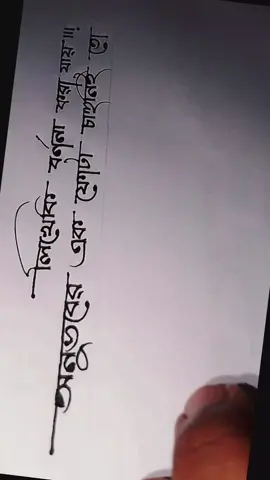 লিখেকি বর্ণনা করা যায় !!!
অনুভবের এক ফোটা চাহনিই তো